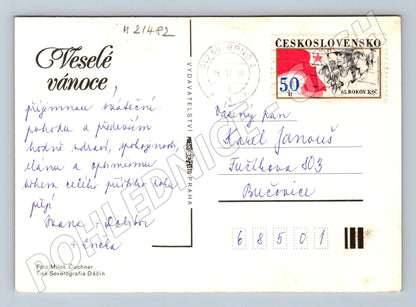 M 21482
Veselé
vánoce,
příjemnou sváteční
pohodu a především
hodně zdraví, spokojenosti,
elánu a optimismu
během celého příštího roku
přejí
Ivana + Dalibor
+ Anela
Foto Miloš Cachner
Tisk Severografia Děčín
VYDAVATELSTVÍ
PRAHA
ČESKOSLOVENSKO
50
h
65. ROKOV KSČ
Vážený pán
Karel Janouš
Fučíkova 803
Bučovice
68501
POHLEDNICE-CECH